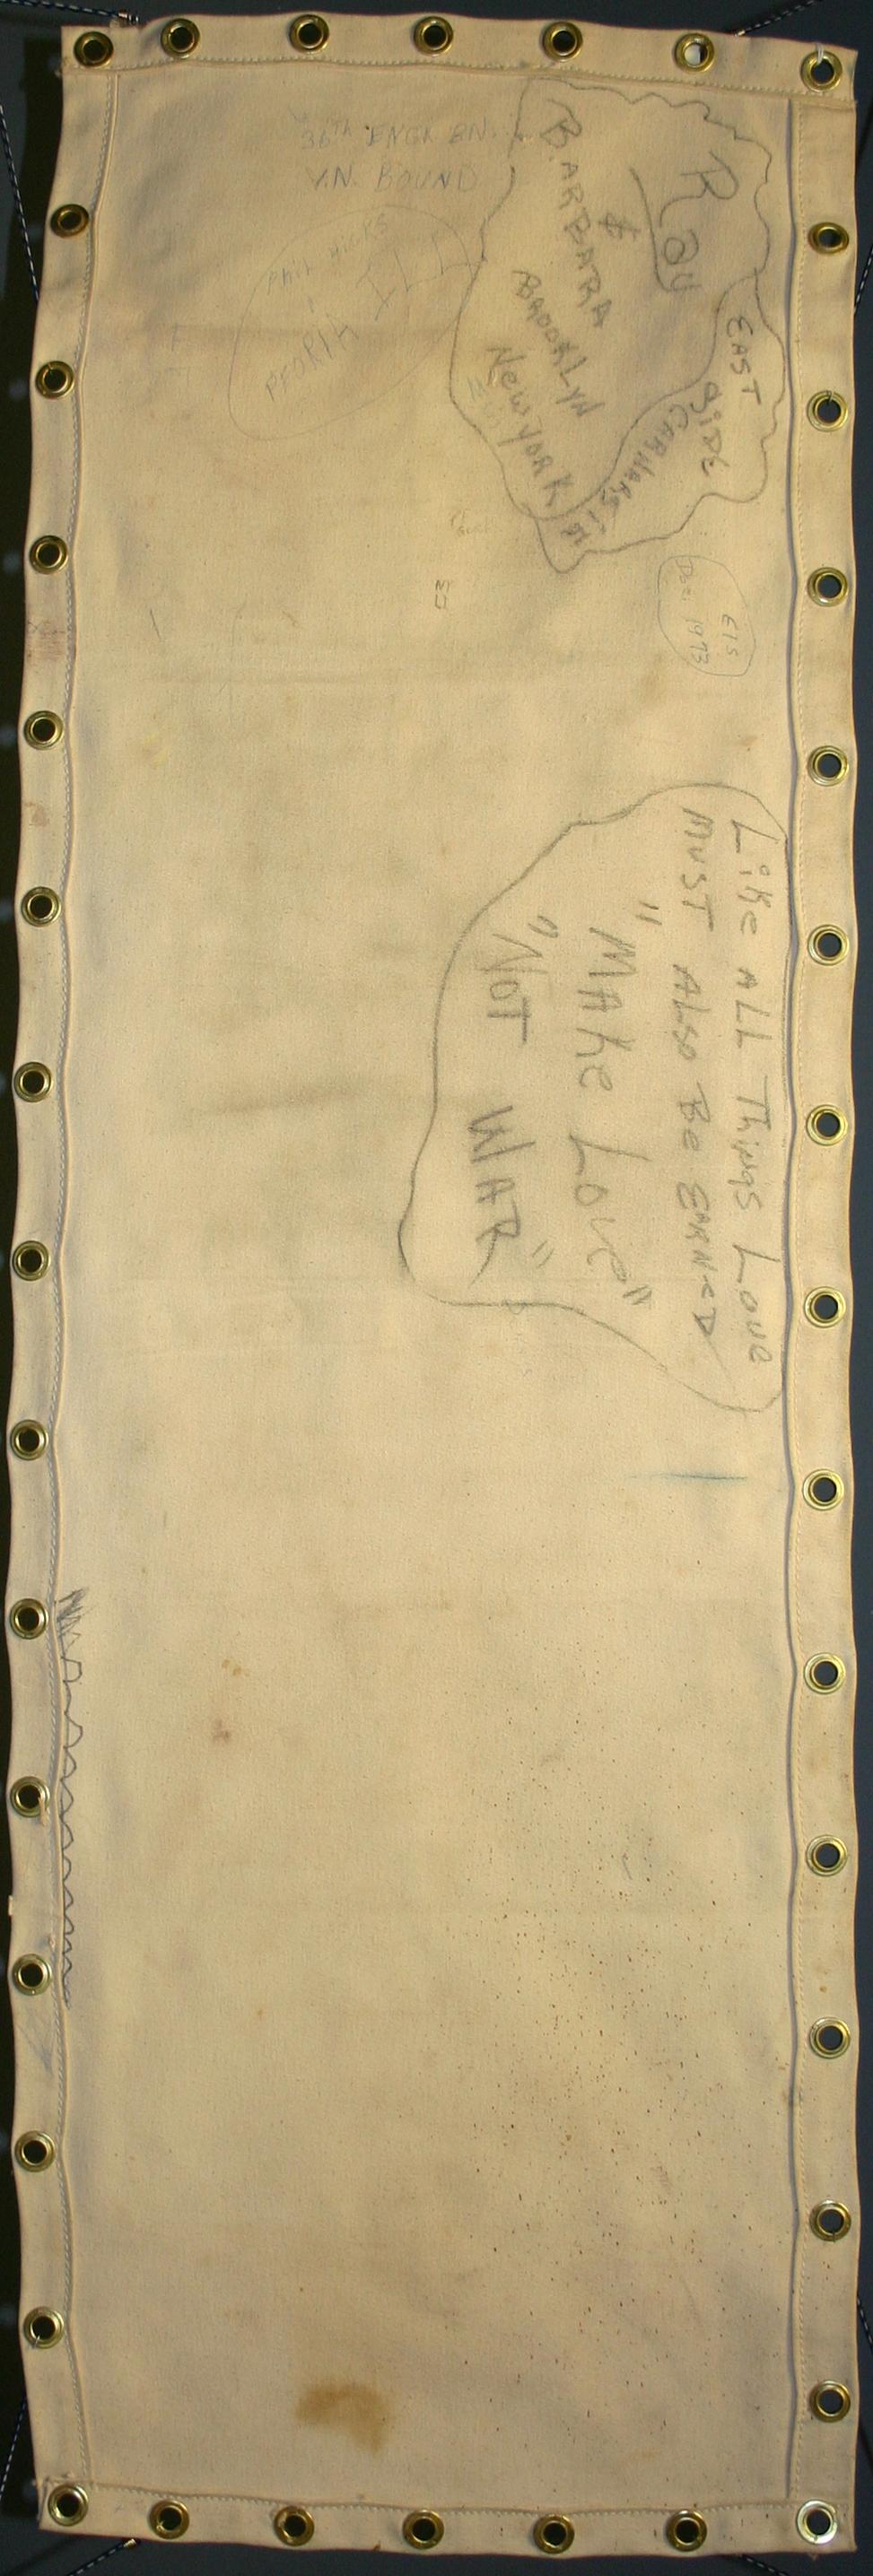 36TH ENGR BN.
V.N. BOUND
PHIL HICKS
PEORIA ILL
Ray
&
BARBARA
BROOKLYN
New YORK
EAST SiDE
CANARSIE
ETS
1973
Like ALL Things Love
MUST ALSO Be EARNeD
"MAke Love"
"NOT WAR"
NJ